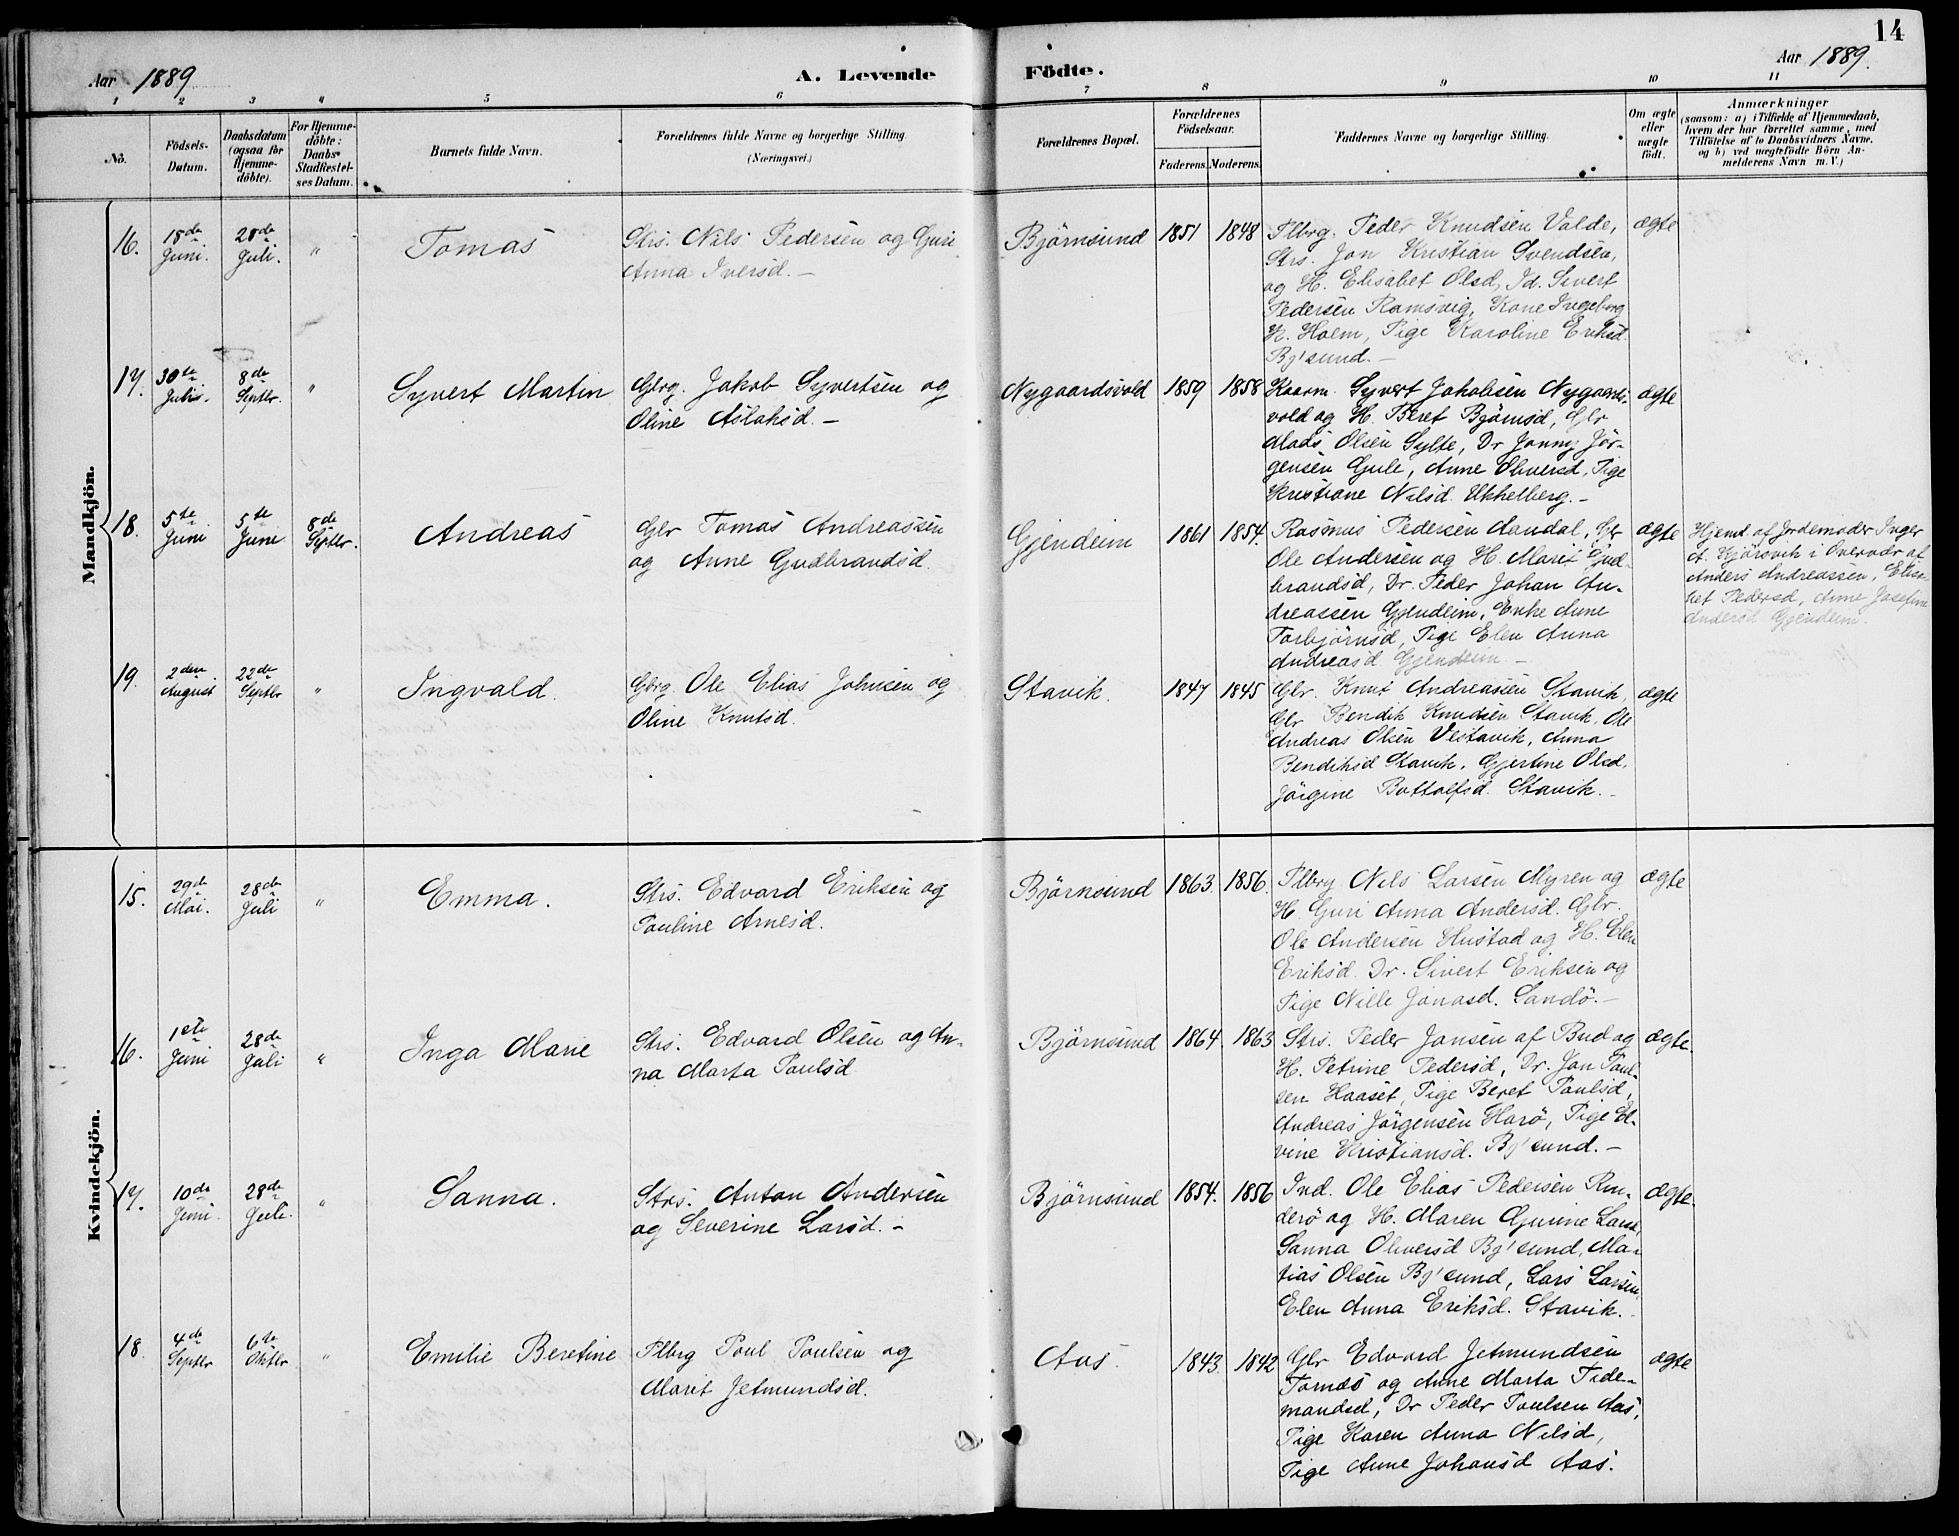 14
Aar 1889
A. Levende
Födte.
Aar 1889.
1 2 3 4 5 6 7 8 9 10 11
No.
Födsels-
Datum.
Daabsdatum
(ogsaa for
Hjemme-
döbte).
For Hjemme-
döbte:
Daabs-
Stadfæstel-
ses Datum.
Barnets fulde Navn.
Forældrenes fulde Navne og borgerlige Stilling.
(Næringsvei.)
Forældrenes Bopæl.
Forældrenes
Födselsaar.
Faderens. Moderens.
Faddernes Navne og borgerlige Stilling.
Om ægte
eller
uægte
födt.
Anmærkninger
(saasom: a) i Tilfælde af Hjemmedaab,
hvem der har forrettet samme, med
Tilföielse af to Daabsvidners Navne,
og b) ved uægtefödte Börn An-
melderens Navn m. V.)
Mandkjön.
16.
18de
Juni.
28de
Juli.
"
Tomas
Strs. Nils Pedersen og Guri
Anna Iversd. –
Björnsund
1851
1848
Plbrg. Peder Knudsen Valde,
Strs. Jon Kristian Svendsen,
og H. Elisabet Olsd, Id. Sivert
Pedersen Ramsvig, Kone Ingeborg
K. Holm, Pige Karoline Eriksd.
Bj'sund. –
ægte
17.
30te
Juli.
8de
Septbr.
"
Syvert Martin
Gbrg. Jakob Syvertsen og
Oline Aslaksd. –
Nygaardsvold
1859
1858
Kaarm. Syvert Jakobsen Nygaards-
vold og H. Beret Björnsd, Gbr
Mads Olsen Sylte, Dr Jonny Jör-
gensen Gule, Anne Oliversd, Pige
Kristiane Nilsd. Ukkelberg. –
ægte
18.
5te
Juni
5te
Juni
8de
Septbr.
Andreas
Gbr Tomas Andreassen
og Anne Gudbrandsd.
Gjendeim
1861
1854.
Rasmus Pedersen Aandal, Gbr
Ole Andersen og H. Marit Gud-
brandsd, Dr. Peder Johan An-
dreassen Gjendeim, Enke Anne
Torbjörnsd, Pige Elen Anna
Andreasd Gjendeim –
ægte
Hjemd. af Jordemoder Inger
A. Kjörsvik i Overvær af
Anders Andreassen, Elisa-
bet Pedersd, Anne Josefine
Andersd Gjendeim.
19.
2den
August
22de
Septbr
"
Ingvald.
Gbrg. Ole Elias Johnsen og
Oline Knutsd.
Stavik.
1847
1845
Gbr. Knut Andreassen Stavik,
Gbr Bendik Knudsen Stavik, Ole
Andreas Olsen Vestavik, Anna
Bendiksd Stavik, Gjertine Olsd,
Jörgine Bottolfsd. Stavik. –
ægte
Kvindekjön.
15.
29de
Mai.
28de
Juli
"
Emma.
Strs. Edvard Eriksen og
Pauline Arnesd.
Björnsund
1863.
1856.
Plbrg Nils Larsen Myren og
H. Guri Anna Andersd. Gbr.
Ole Andersen Hustad og H. Elen
Eriksd. Dr. Sivert Eriksen og
Pige Nille Jonasd. Sandö. –
ægte
16.
1ste
Juni
28de
Juli
"
Inga Marie
Strs. Edvard Olsen og An-
na Marta Paulsd
Björnsund
1864.
1863
Strs. Peder Jansen af Bud og
H. Petrine Pedersd, Dr. Jon Paul-
sen Haaset, Pige Beret Paulsd,
Andreas Jörgensen Harö, Pige El-
vine Kristiansd. Bj'sund. –
ægte.
17.
10de
Juni.
28de
Juli.
"
Sanna.
Strs. Anton Andersen
og Severine Larsd. –
Björnsund
1854.
1856
Ind. Ole Elias Pedersen Rin-
derö og H. Maren Gurine Larsd,
Sanna Oliversd Bj'sund, Ma-
tias Olsen Bj'sund, Lars Larsen,
Elen Anna Eriksd. Stavik.
ægte.
18.
4de
Septbr
6te
Oktbr
"
Emilie Beretine
Plbrg Poul Poulsen og
Marit Jetmundsd.
Aas.
1843.
1842
Gbr Edvard Jetmundsen
Tornes og Anne Marta Tide-
mandsd, Dr Peder Poulsen Aas,
Pige Karen Anna Nilsd,
Pige Anne Johansd Aas.
ægte